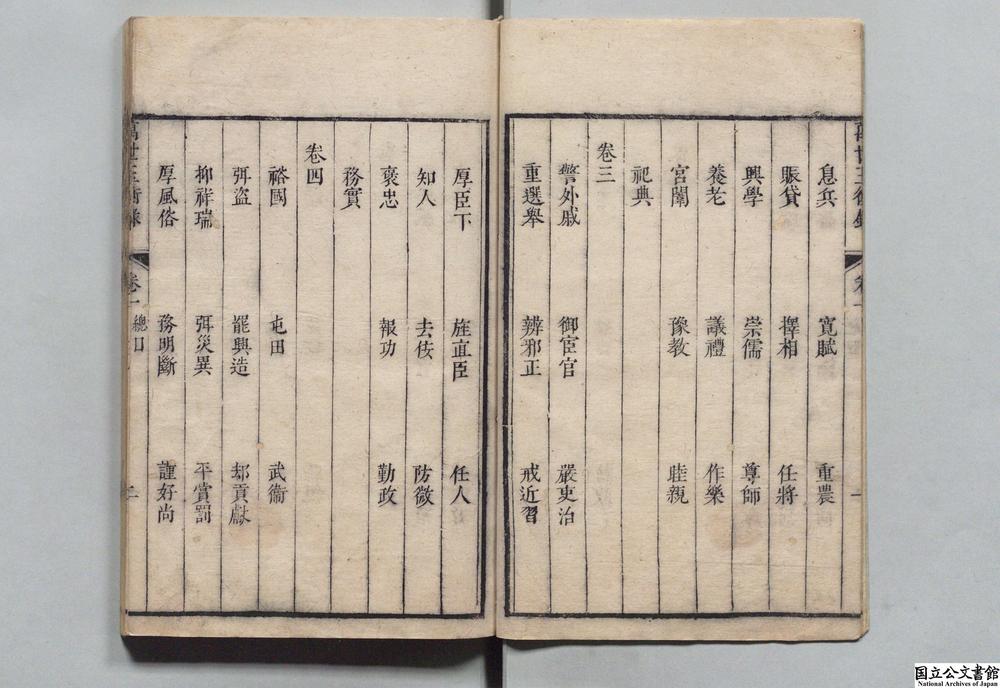 息兵 寬賦 重農
賑貸 擇相 任將
興學 崇儒 尊師
養老 議禮 作樂
宮闈 豫教 睦親
祀典
卷三
警外戚 御宦官 嚴吏治
重選舉 辨邪正 戒近習
厚臣下 旌直臣 任人
知人 去佞 防微
褒忠 報功 勤政
務實
卷四
裕國 屯田 武衞
弭盜 罷興造 却貢獻
抑祥瑞 弭災異 平賞罰
厚風俗 務明斷 謹好尚
卷一 總目 二
国立公文書館
National Archives of Japan